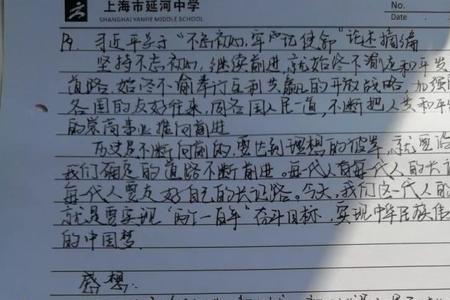 上海市延河中学
SHANGHAI YANHE MIDDLE SCHOOL
No.
Date
习近平关于“不忘初心,牢记使命”论述摘编
坚持不忘初心,继续前进,就始终不渝走和平发
道路,始终不渝奉行互利共赢的开放战略,加强同
各国的友好往来,同各国人民一道,不断把人类和平
的崇高事业推向前进
历史是不断向前的,要达到理想的彼岸,就要沿
我们确定的道路不断前进。每代人有每代人的长征
每一代人要走好自己的长征路。今天,我们这一代人的
就是要实现“两个一百年”奋斗目标,实现中华民族伟
的中国梦.
感想: